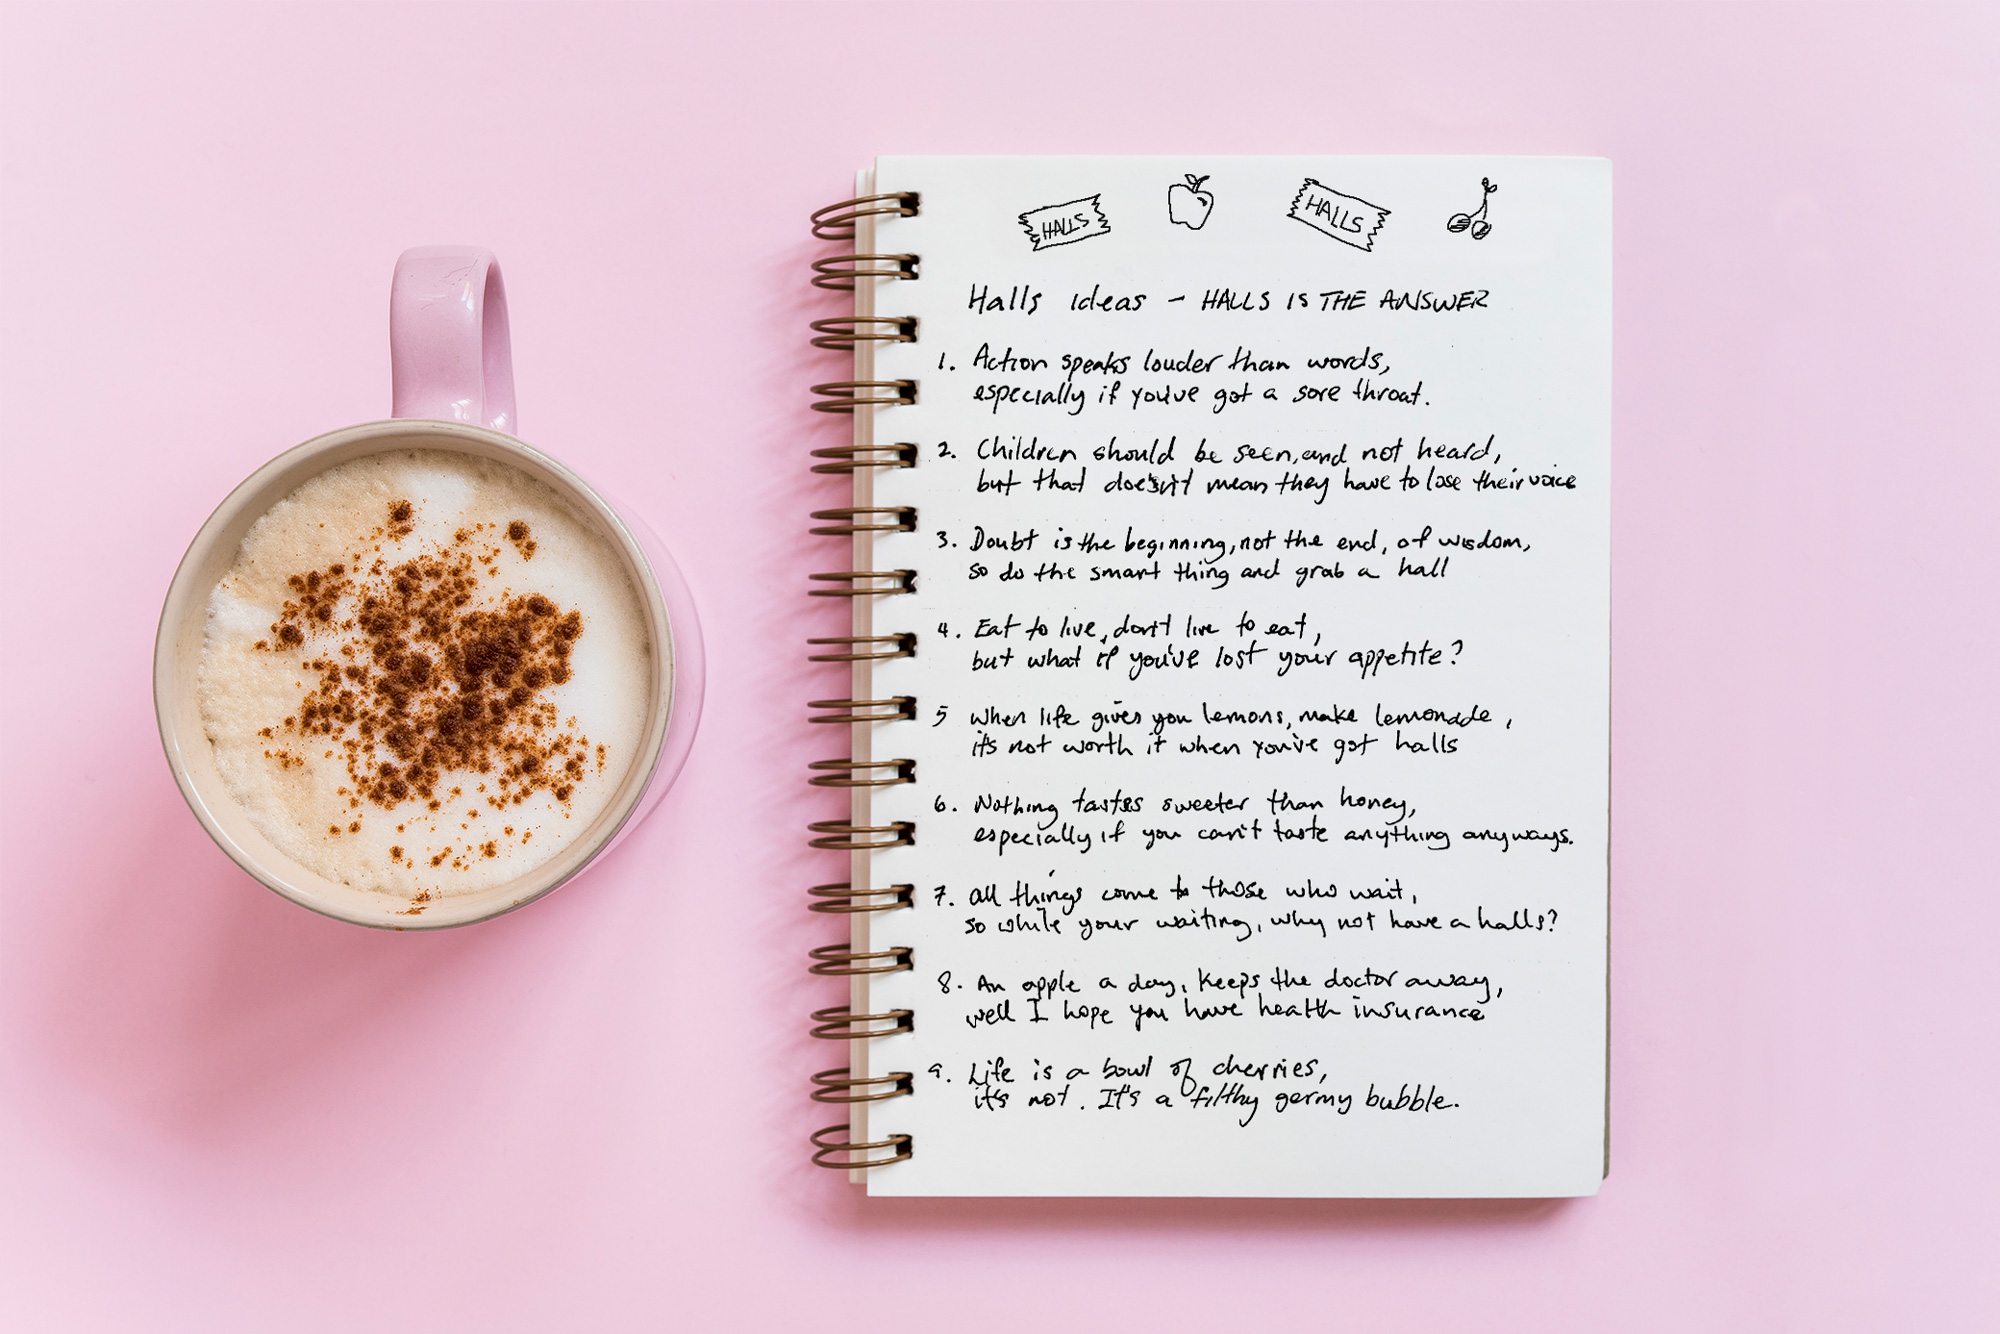 HALLS
HALLS
Halls ideas - HALLS IS THE ANSWER
1. Action speaks louder than words,
especially if you've got a sore throat.
2. Children should be seen, and not heard,
but that doesn't mean they have to lose their voice
3. Doubt is the beginning, not the end, of wisdom,
so do the smart thing and grab a hall
4. Eat to live, don't live to eat,
but what if you've lost your appetite?
5 When life gives you lemons, make lemonade,
it's not worth it when you've got halls
6. Nothing tastes sweeter than honey,
especially if you can't taste anything anyways.
7. All things come to those who wait,
so while your waiting, why not have a halls?
8. An apple a day, keeps the doctor away,
well I hope you have health insurance
9. Life is a bowl of cherries,
it's not. It's a filthy germy bubble.